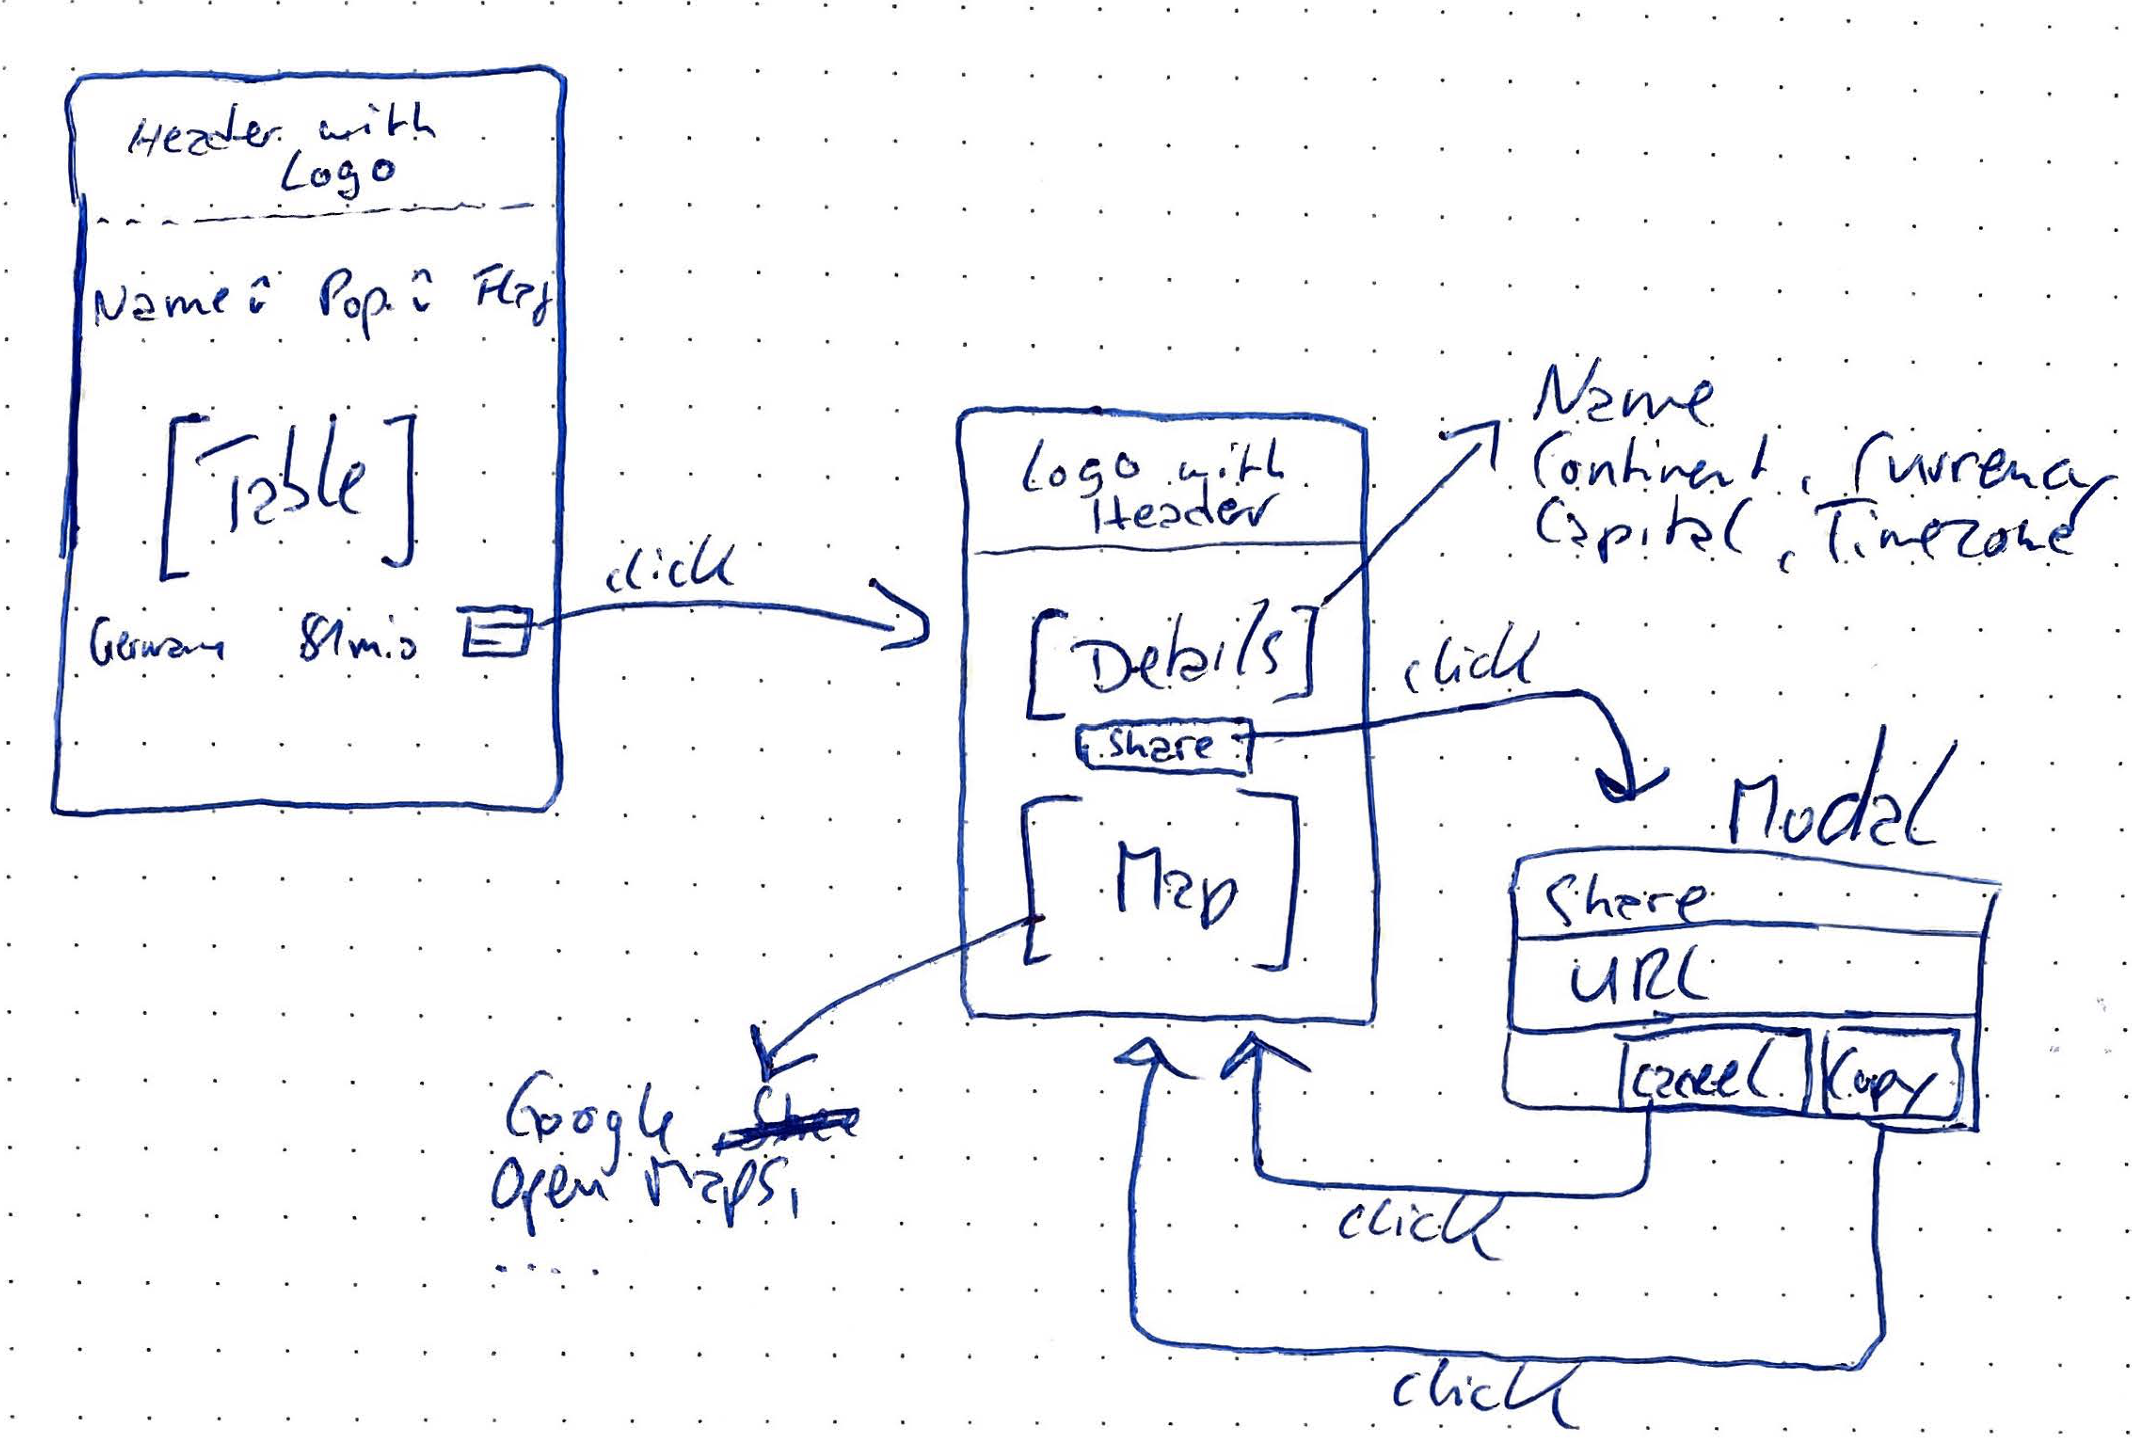 Header with
Logo
Name Pop. Flag
[Table]
Germany 81mio
click
Logo with
Header
[Details]
share
[Map]
Name
Continent, Currency
Capital, Timezone
click
Modal
Share
URL
Cancel Copy
click
click
Google
Open Maps,
.....